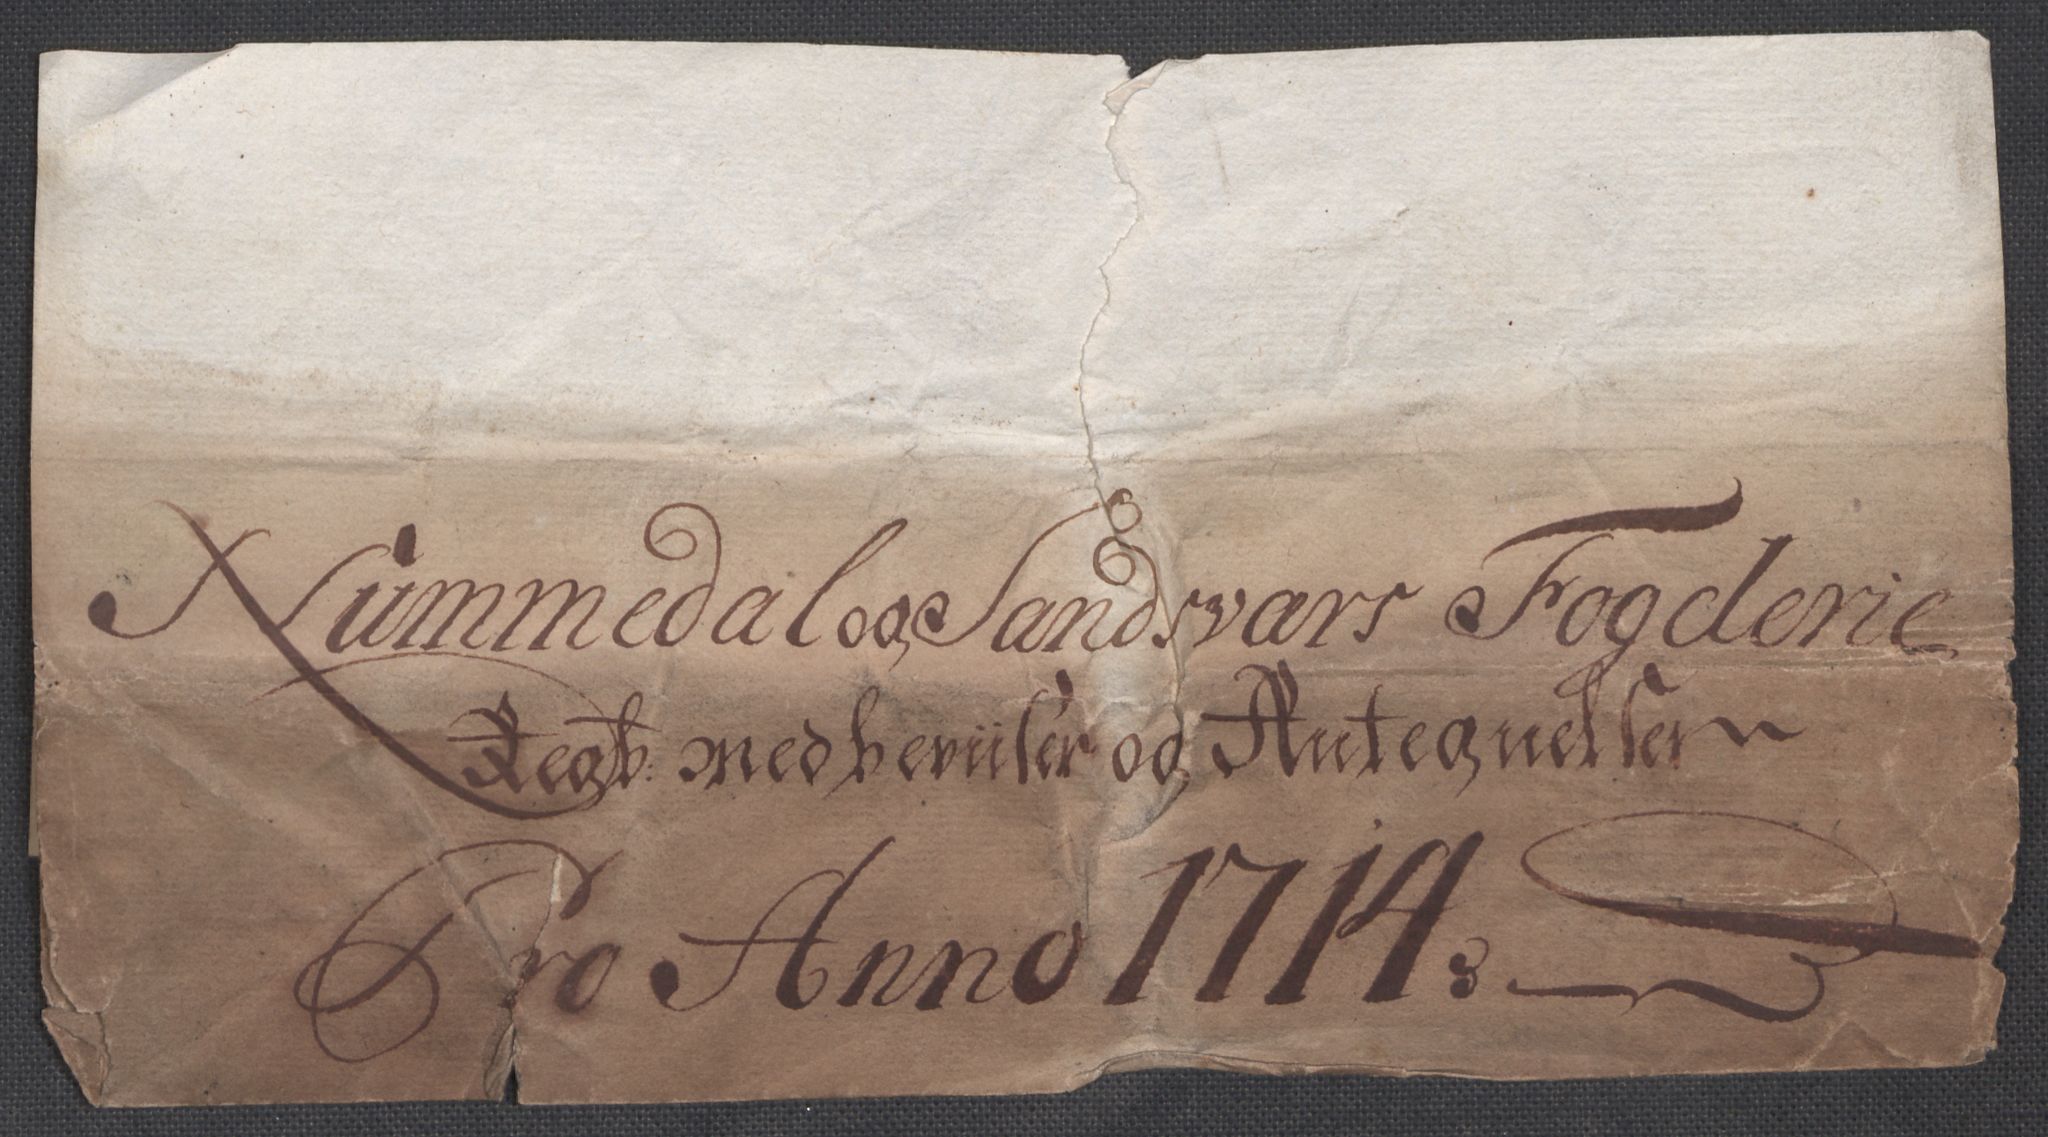 Nummedal og Sandsvars Fogderie
Regb: med beviiser og Antegnelser
Pro Anno 1714: